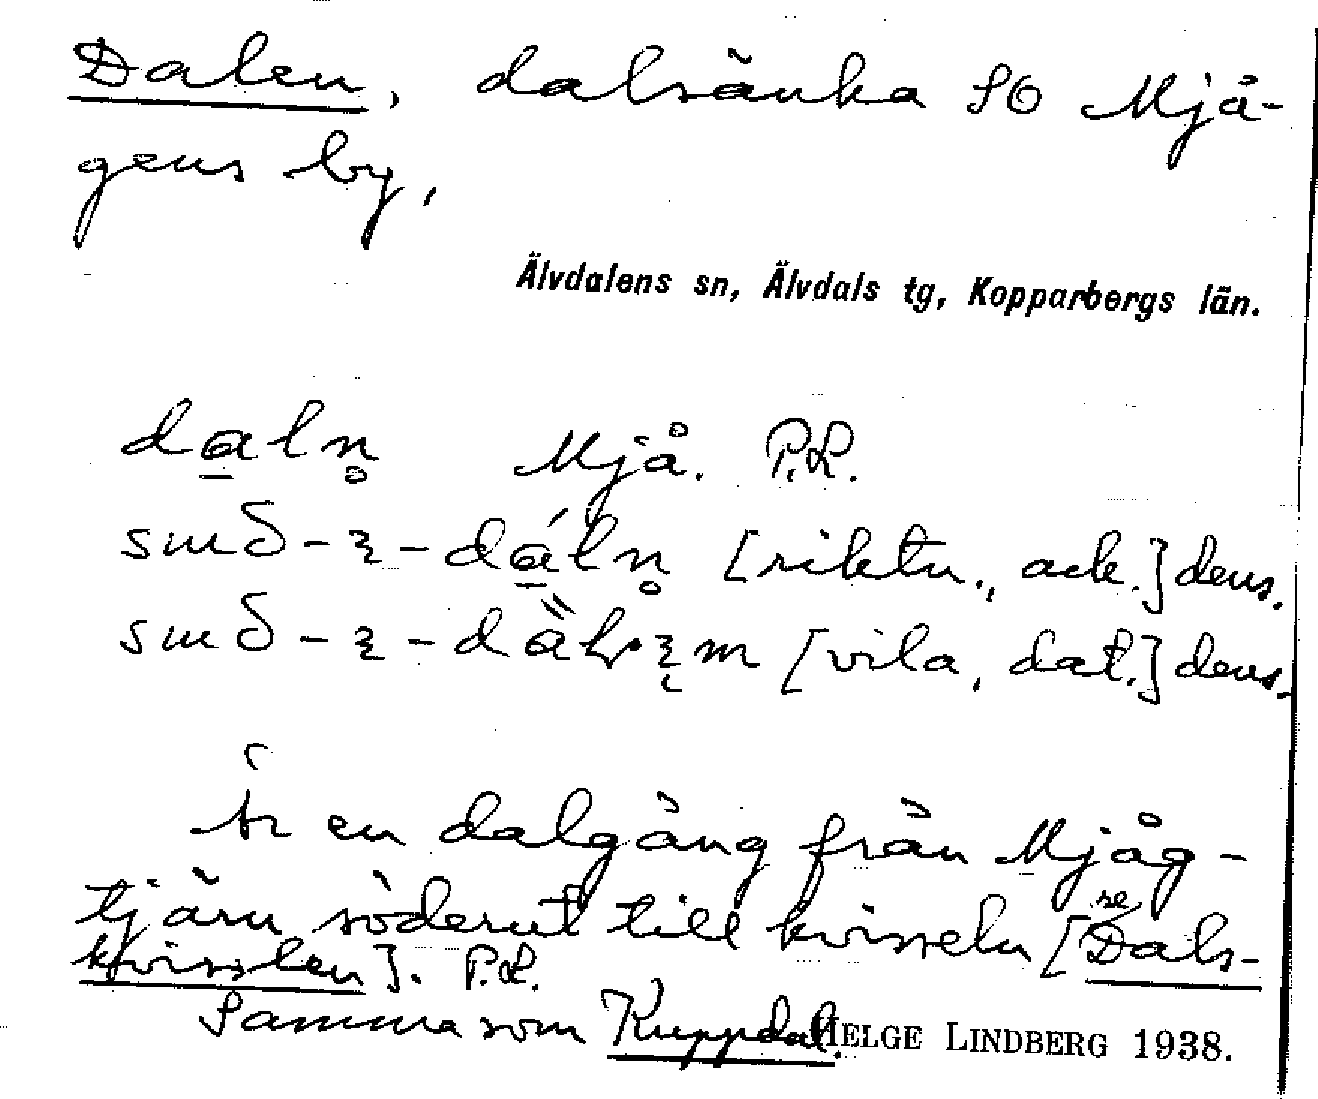 Dalen, dalsänka SO Mjå-
gens by,
Älvdalens sn, Älvdals tg, Kopparbergs län.
daln̥ Mjå. P.L.
suð-ı-dáln̥ [riktn., ack.] dens.
[vila, dat.] dens.
Är en dalgång från Mjåg-
tjärn söderut till kvisseln [se Dals-
kvisslen]. P.L.
Samma som Kuppdal.
HELGE LINDBERG 1938.